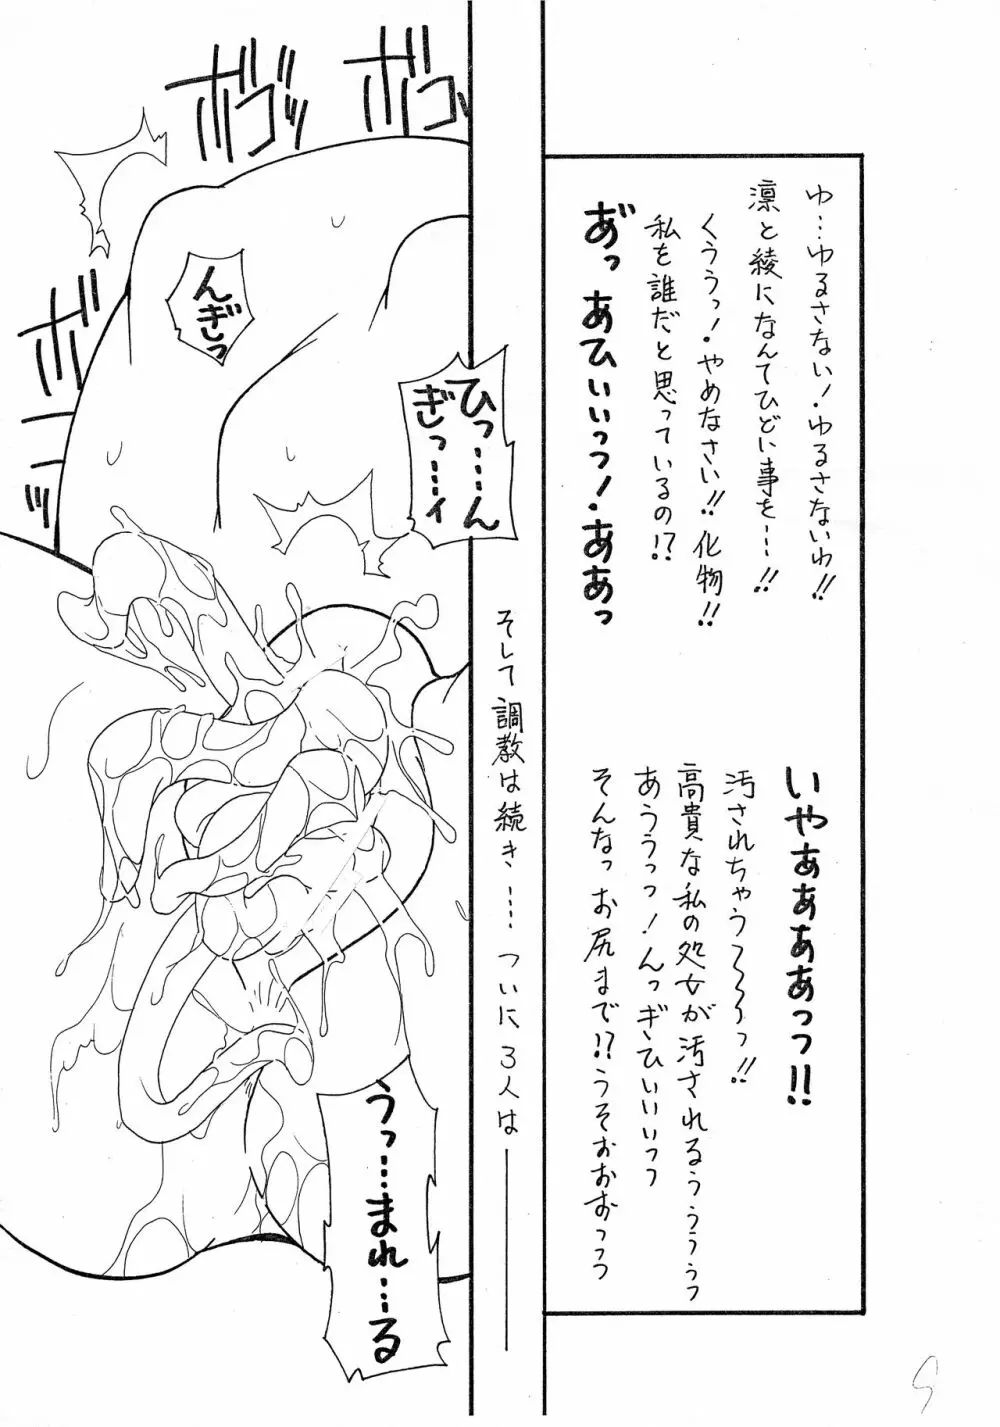 ゆ…ゆるさない!ゆるさないわ!!
凛と綾になんてひどい事を…!!
くううっ!やめなさい!!化物!!
私を誰だと思っているの!?
あ゛っあひぃぃっっ!ああっ
いやぁぁああっっ!!
汚されちゃう~~~っ!!
高貴な私の処女が汚されるぅぅぅぅっ
あううっっ!んっぎひいいいっっ
そんなっお尻まで!?うそおおおっっっ
そして調教は続き……ついに3人は――
ボゴッ
ボゴッ
んぎぃっ
ひっ……ん
ぎぃっ……ィ
うっ…まれ…る
9